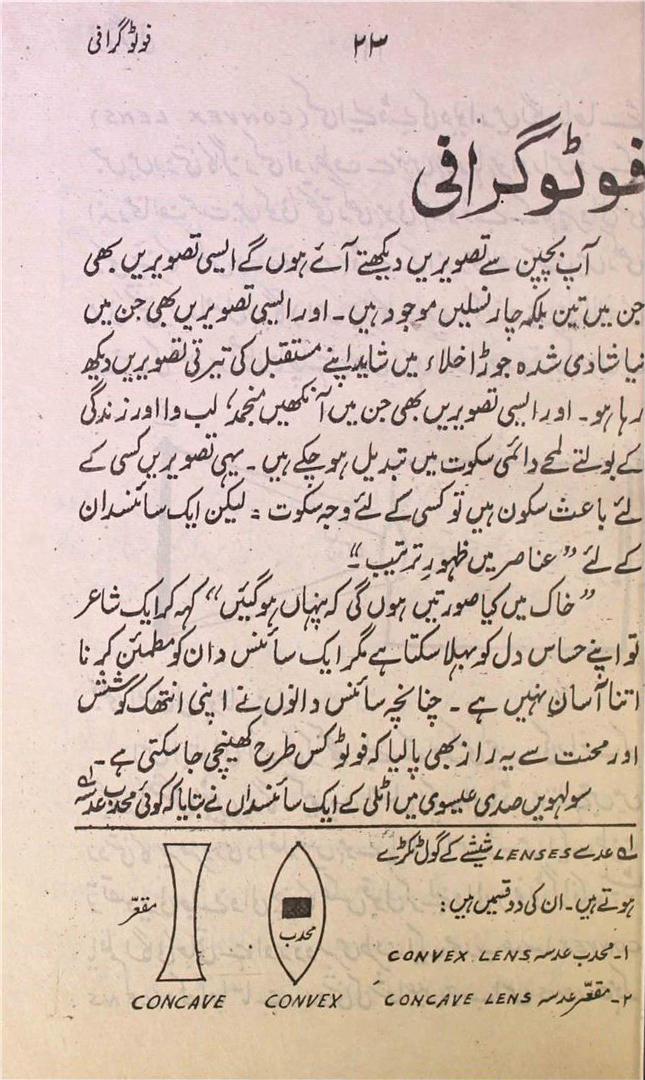 فوٹوگرافی
۲۳
فوٹوگرافی
آپ بچپن سے تصویریں دیکھتے آئے ہوں گے ایسی تصویریں بھی
جن میں تین بلکہ چار نسلیں موجود ہیں۔ اور ایسی تصویریں بھی جن میں
نیا شادی شدہ جوڑا خلاء میں شاید اپنے مستقبل کی تیرتی تصویریں دیکھ
رہا ہو۔ اور ایسی تصویریں بھی جن میں آنکھیں منجمد، لب وا اور زندگی
کے بولتے لمحے دائمی سکوت میں تبدیل ہو چکے ہیں۔ یہی تصویریں کسی کے
لئے باعث سکون ہیں تو کسی کے لئے وجہ سکوت : لیکن ایک سائنسدان
کے لئے ”عناصر میں ظہورِ ترتیب“۔
”خاک میں کیا صورتیں ہوں گی کہ پنہاں ہو گئیں“ کہہ کر ایک شاعر
تو اپنے حساس دل کو بہلا سکتا ہے مگر ایک سائنس دان کو مطمئن کرنا
اتنا آسان نہیں ہے۔ چنانچہ سائنس دانوں نے اپنی انتھک کوشش
اور محنت سے یہ راز بھی پا لیا کہ فوٹو کس طرح کھینچی جا سکتی ہے۔
سولہویں صدی عیسوی میں اٹلی کے ایک سائنسداں نے بتایا کہ کوئی محدب عدسہ ؎۱
؎۱ عدسے LENSES شیشے کے گول ٹکڑے
ہوتے ہیں۔ ان کی دو قسمیں ہیں:
۱۔ محدب عدسہ CONVEX LENS
۲۔ مقعّر عدسہ CONCAVE LENS
محدب
CONVEX
مقعّر
CONCAVE